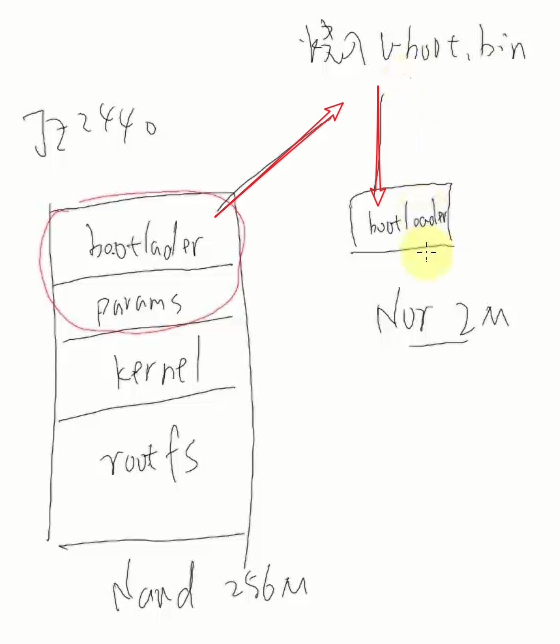 烧入 u-boot.bin
Jz2440
bootlader
params
kernel
rootfs
Nand 256M
bootloader
Nor 2M